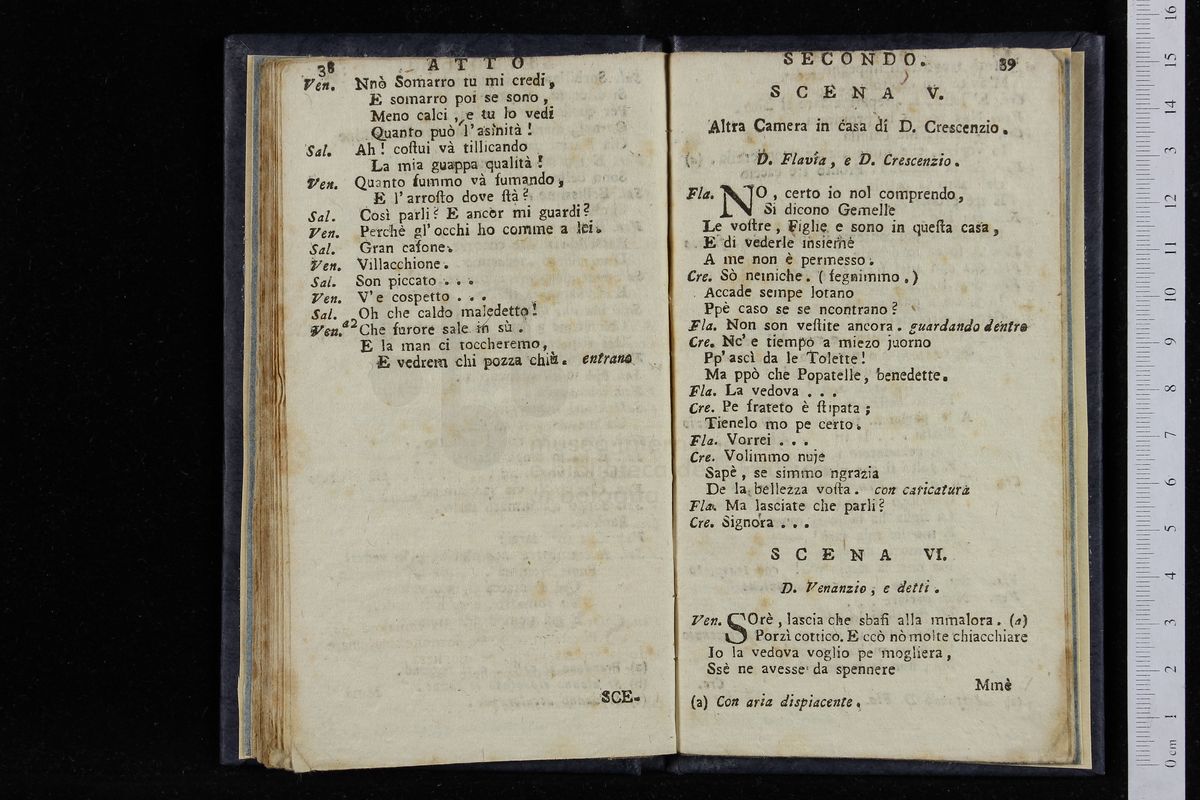 38 ATTO
Ven. Nnò Somarro tu mi credi,
E somarro poi se sono,
Meno calci, e tu lo vedi
Quanto può l'asinità!
Sal. Ah! coſtui và tillicando
La mia guappa qualità!
Ven. Quanto fummo và fumando,
E l'arroſto dove ſtà?
Sal. Così parli? E ancor mi guardi?
Ven. Perchè gl'occhi ho comme a lei.
Sal. Gran caſone.
Ven. Villacchione.
Sal. Son piccato . . .
Ven. V'e cospetto . . .
Sal. Oh che caldo maledetto!
Ven. a2 Che furore sale in sù.
E la man ci toccheremo,
E vedrem chi pozza chiù. entrano
SCE-
SECONDO. 39
SCENA V.
Altra Camera in casa di D. Crescenzio.
D. Flavia, e D. Crescenzio.
Fla. NO, certo io nol comprendo,
Si dicono Gemelle
Le voſtre, Figlie e sono in queſta casa,
E di vederle insieme
A me non è permesso.
Cre. Sò nemiche. (fegnimmo.)
Accade sempe lotano
Ppè caso se se ncontrano?
Fla. Non son veſtite ancora. guardando dentro
Cre. Nc'e tiempo a miezo juorno
Pp'ascì da le Tolette!
Ma ppò che Popatelle, benedette.
Fla. La vedova . . .
Cre. Pe frateto è ſtipata;
Tienelo mo pe certo.
Fla. Vorrei . . .
Cre. Volimmo nuje
Sapè, se simmo ngrazia
De la bellezza voſta. con caricatura
Fla. Ma lasciate che parli?
Cre. Signora . . .
SCENA VI.
D. Venanzio, e detti.
Ven. SOrè, lascia che sbafi alla mmalora. (a)
Porzì cottico. E ccò nò molte chiacchiare
Io la vedova voglio pe mogliera,
Ssè ne avesse da spennere
Mmè
(a) Con aria dispiacente.
0 cm 1 2 3 4 5 6 7 8 9 10 11 12 3 14 15 16